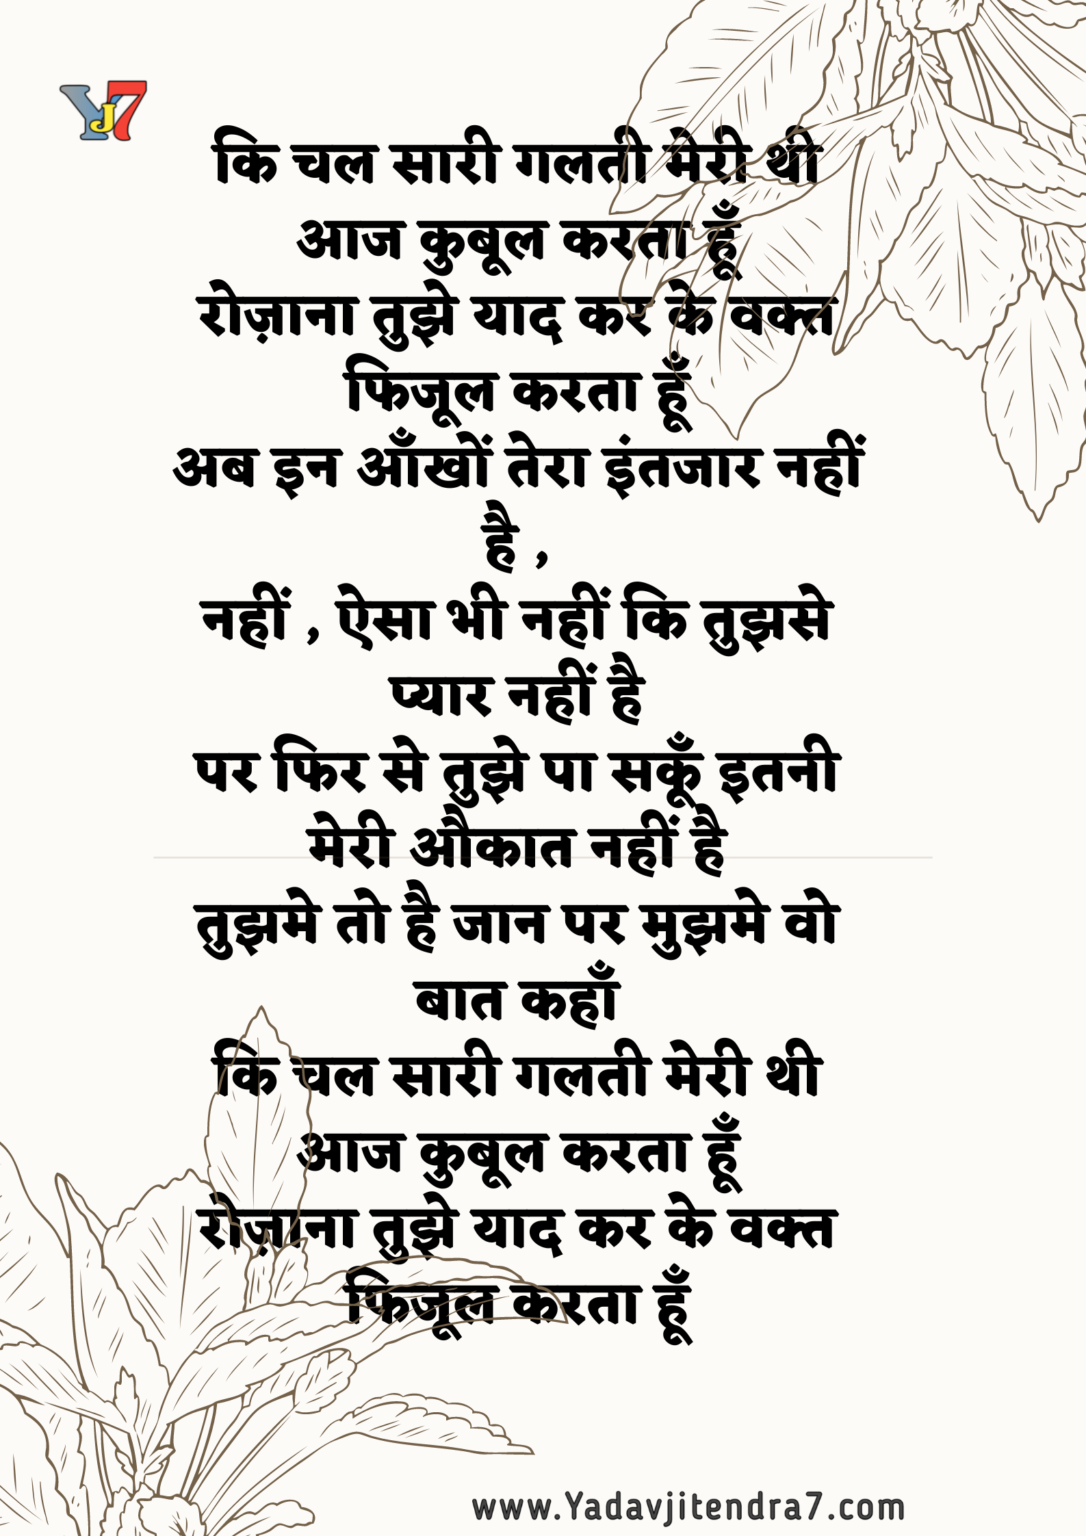 YJ7
कि चल सारी गलती मेरी थी
आज कुबूल करता हूँ
रोज़ाना तुझे याद कर के वक्त
फिजूल करता हूँ
अब इन आँखों तेरा इंतजार नहीं
है ,
नहीं , ऐसा भी नहीं कि तुझसे
प्यार नहीं है
पर फिर से तुझे पा सकूँ इतनी
मेरी औकात नहीं है
तुझमे तो है जान पर मुझमे वो
बात कहाँ
कि चल सारी गलती मेरी थी
आज कुबूल करता हूँ
रोज़ाना तुझे याद कर के वक्त
फिजूल करता हूँ
www.Yadavjitendra7.com